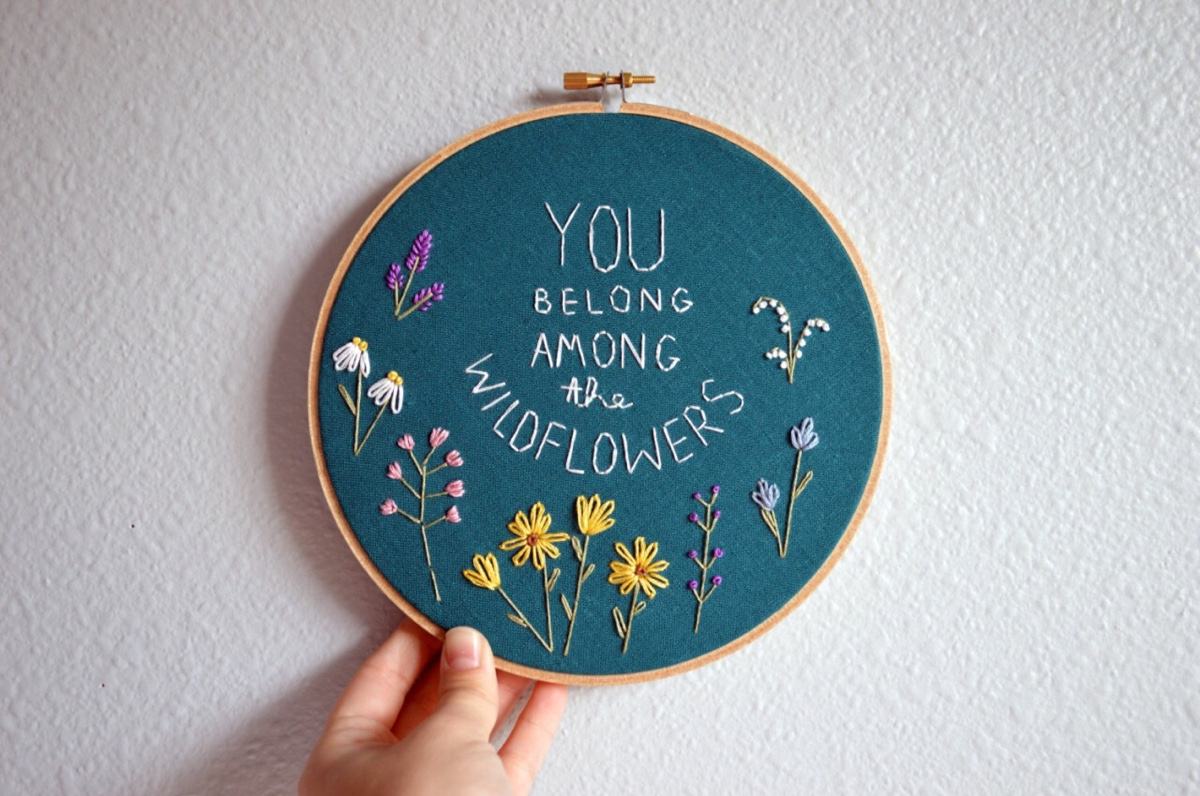 YOU
BELONG
AMONG
the
WILDFLOWERS